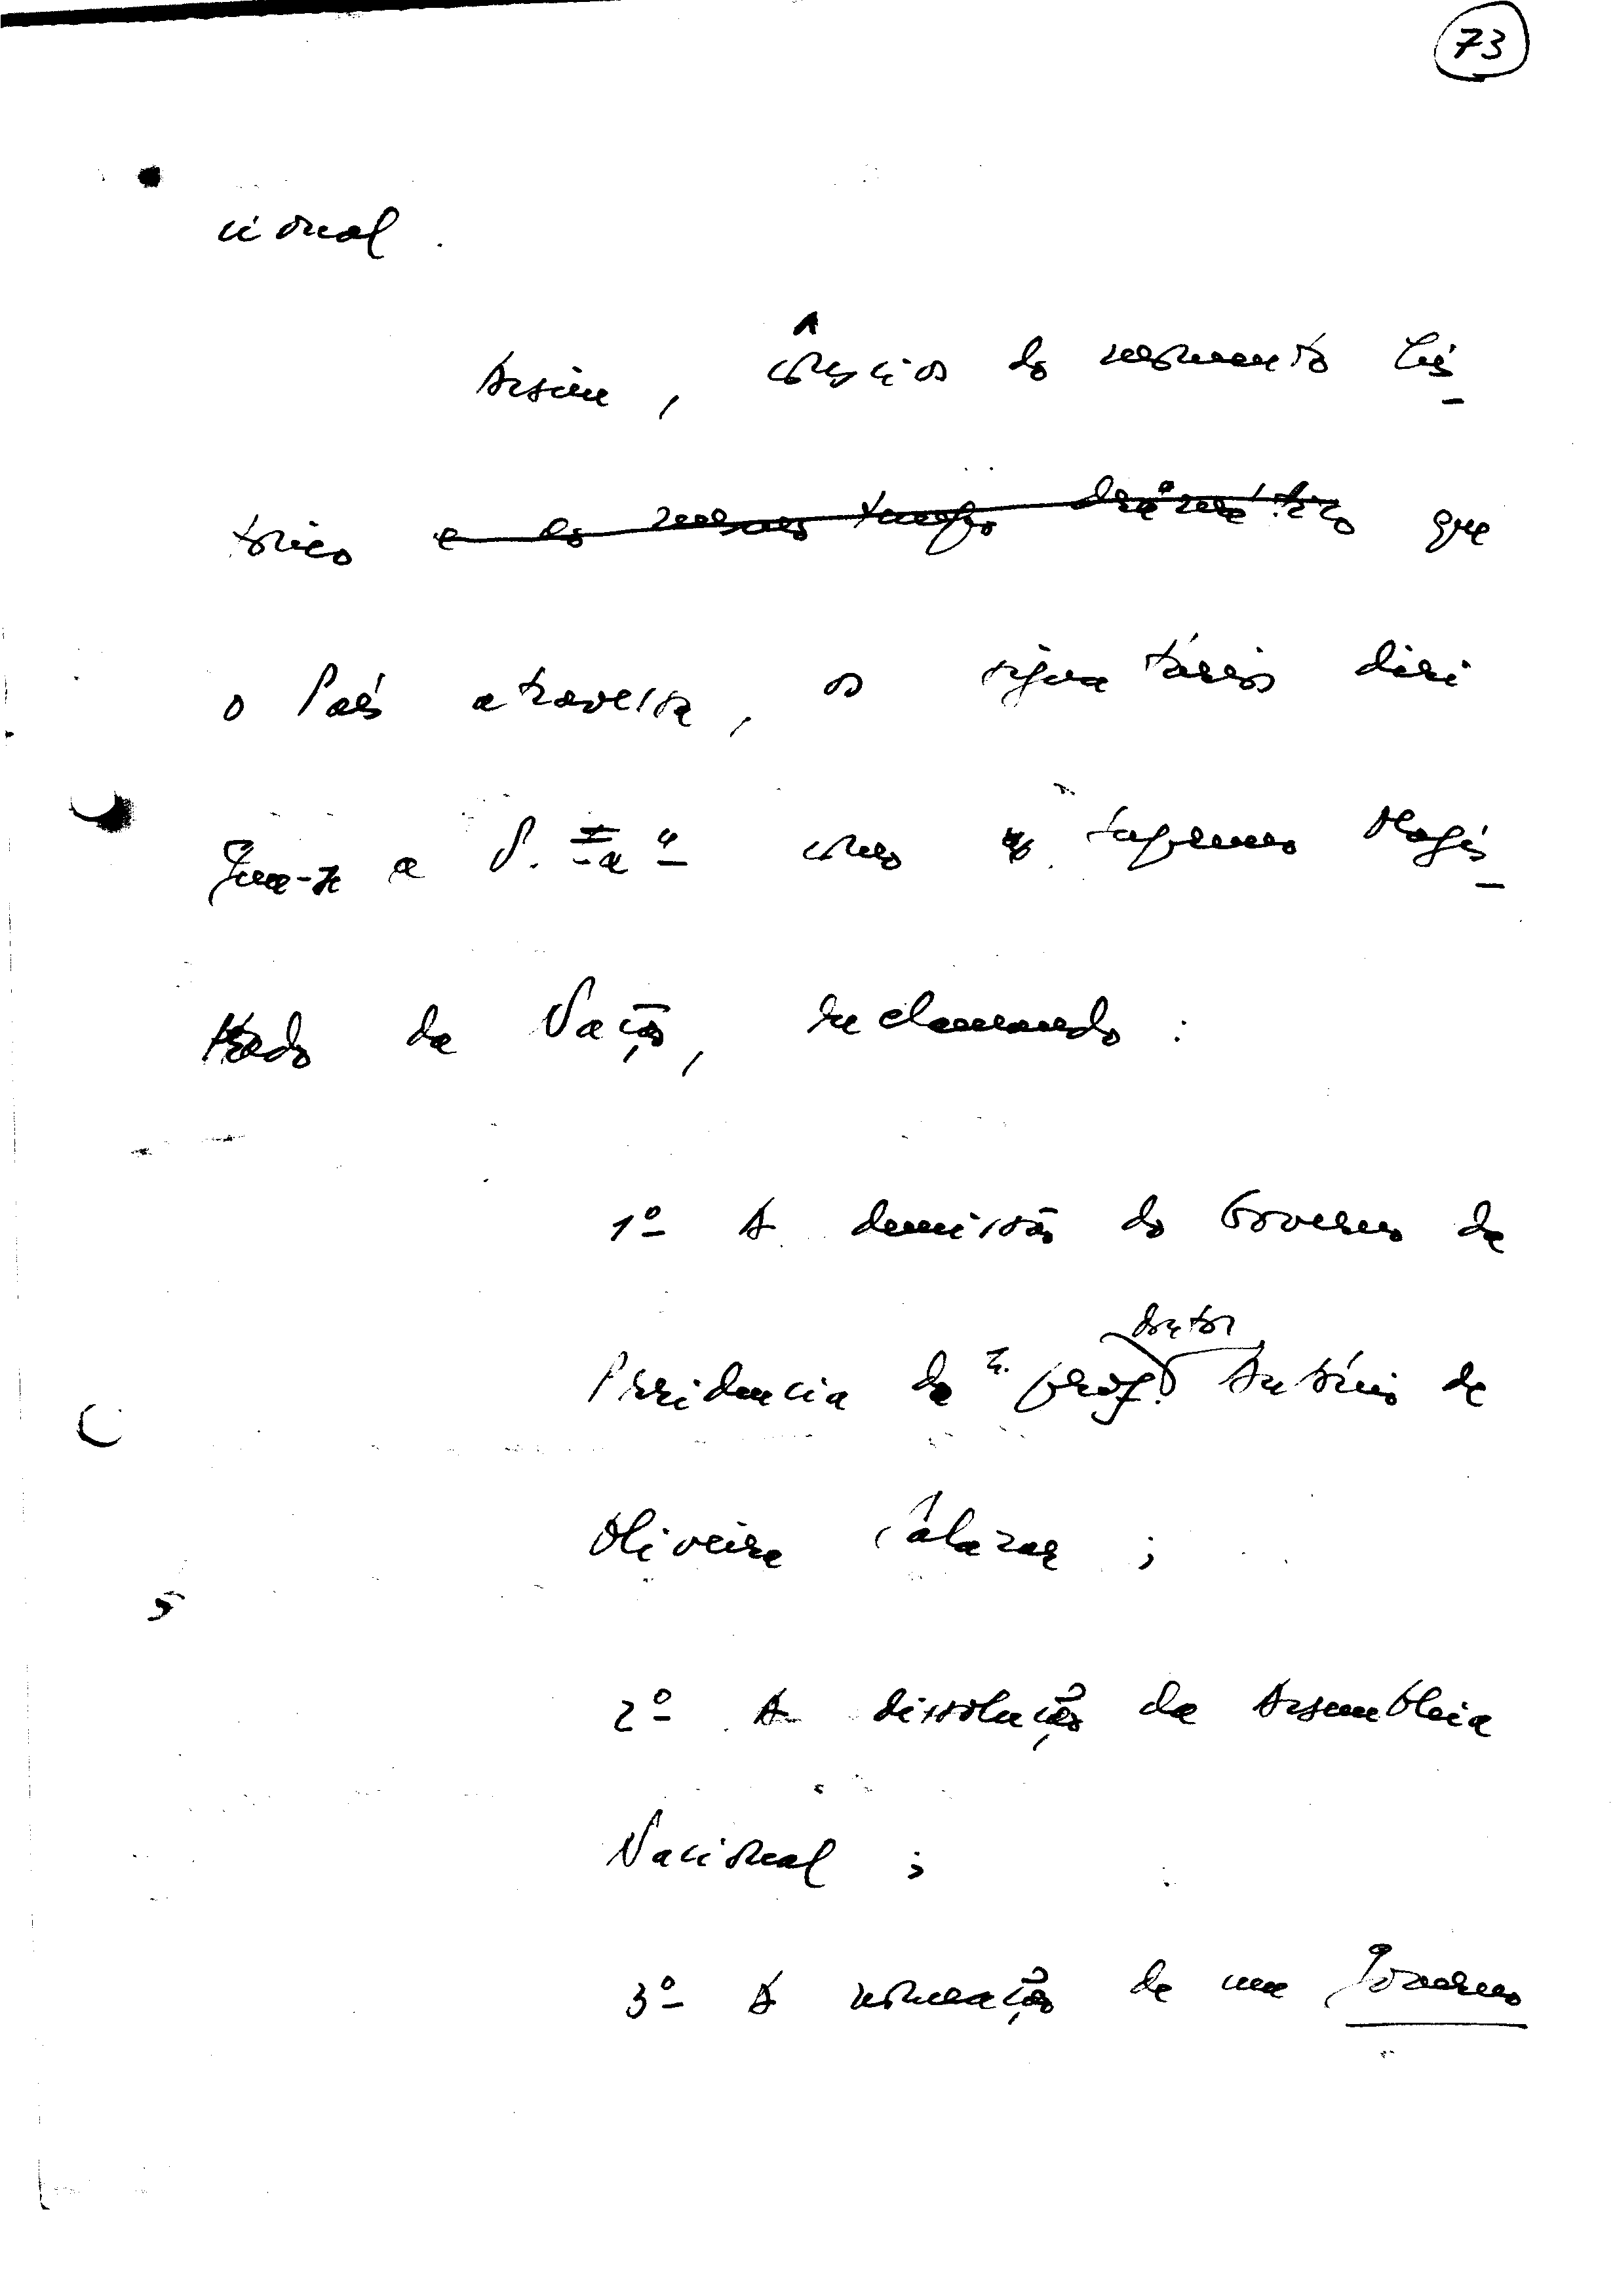 73
cional.
Assim, cônscios do momento his-
tórico e do mesmo tempo dramático que
o País atravessa, os signatários diri
gem-se a S. Exª como supremo Magis-
trado da Nação, reclamando:
1º A demissão do Governo da
doutor
Presidencia do prof. António de
Oliveira Salazar;
2º A dissolução da Assembleia
Nacional;
3º A nomeação de um Governo